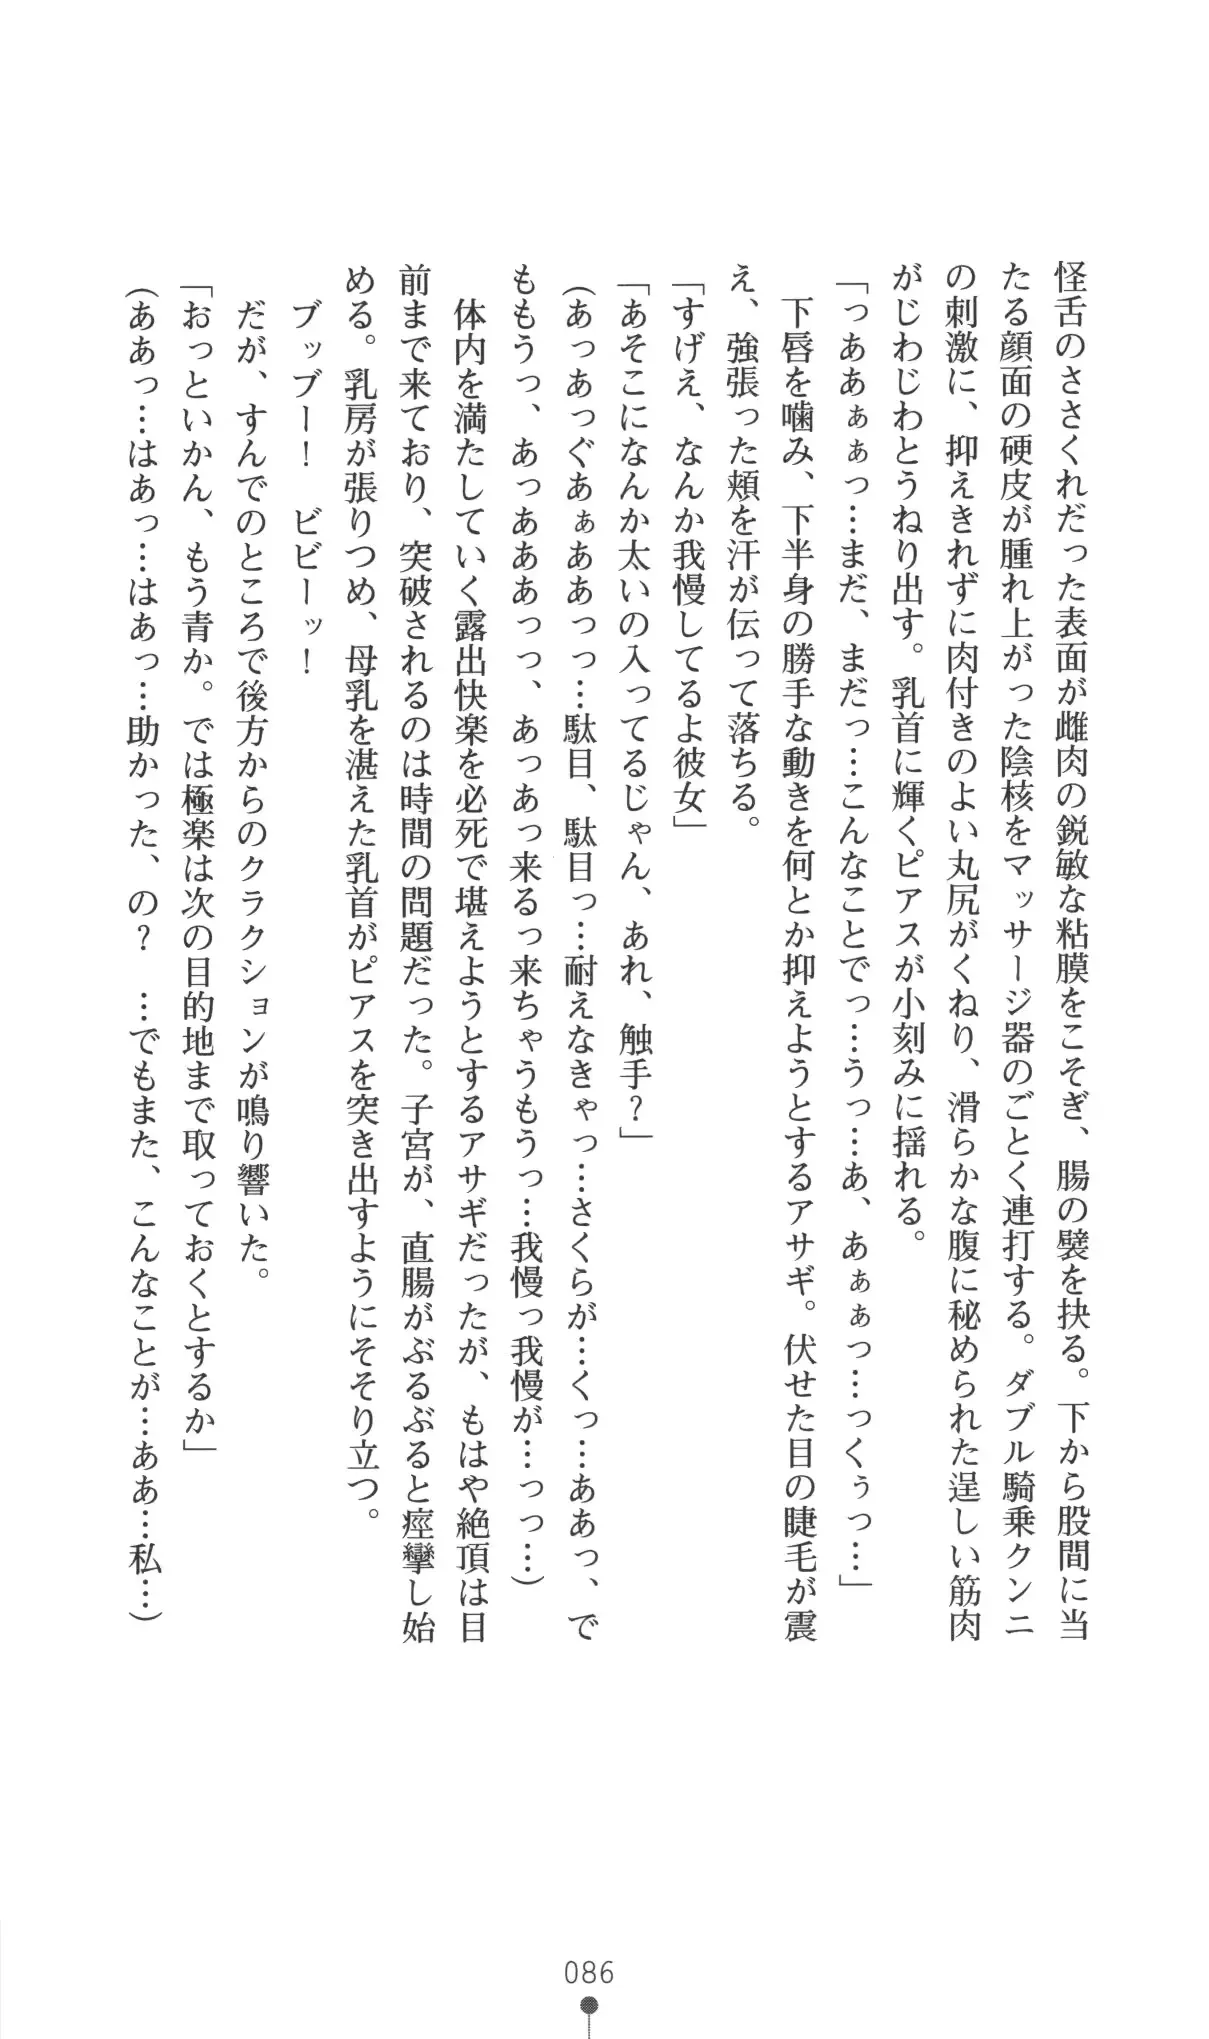 怪舌のささくれだった表面が雌肉の鋭敏な粘膜をこそぎ、腸の襞を抉る。下から股間に当
たる顔面の硬皮が腫れ上がった陰核をマッサージ器のごとく連打する。ダブル騎乗クンニ
の刺激に、抑えきれずに肉付きのよい丸尻がくねり、滑らかな腹に秘められた逞しい筋肉
がじわじわとうねり出す。乳首に輝くピアスが小刻みに揺れる。
「っああぁぁっ…まだ、まだっ…こんなことでっ…うっ…あ、あぁぁっ…っくぅっ…」
下唇を噛み、下半身の勝手な動きを何とか抑えようとするアサギ。伏せた目の睫毛が震
え、強張った頬を汗が伝って落ちる。
「すげえ、なんか我慢してるよ彼女」
「あそこになんか太いの入ってるじゃん、あれ、触手？」
（あっあっぐあぁああっっ…駄目、駄目っ…耐えなきゃっ…さくらが…くっ…ああっ、で
ももうっ、あっあああっっ、あっあっ来るっ来ちゃうもうっ…我慢っ我慢が…っっ…）
体内を満たしていく露出快楽を必死で堪えようとするアサギだったが、もはや絶頂は目
前まで来ており、突破されるのは時間の問題だった。子宮が、直腸がぶるぶると痙攣し始
める。乳房が張りつめ、母乳を湛えた乳首がピアスを突き出すようにそそり立つ。
ブッブー！　ビビーッ！
だが、すんでのところで後方からのクラクションが鳴り響いた。
「おっといかん、もう青か。では極楽は次の目的地まで取っておくとするか」
（ああっ…はあっ…はあっ…助かった、の？　…でもまた、こんなことが…ああ…私…）
086